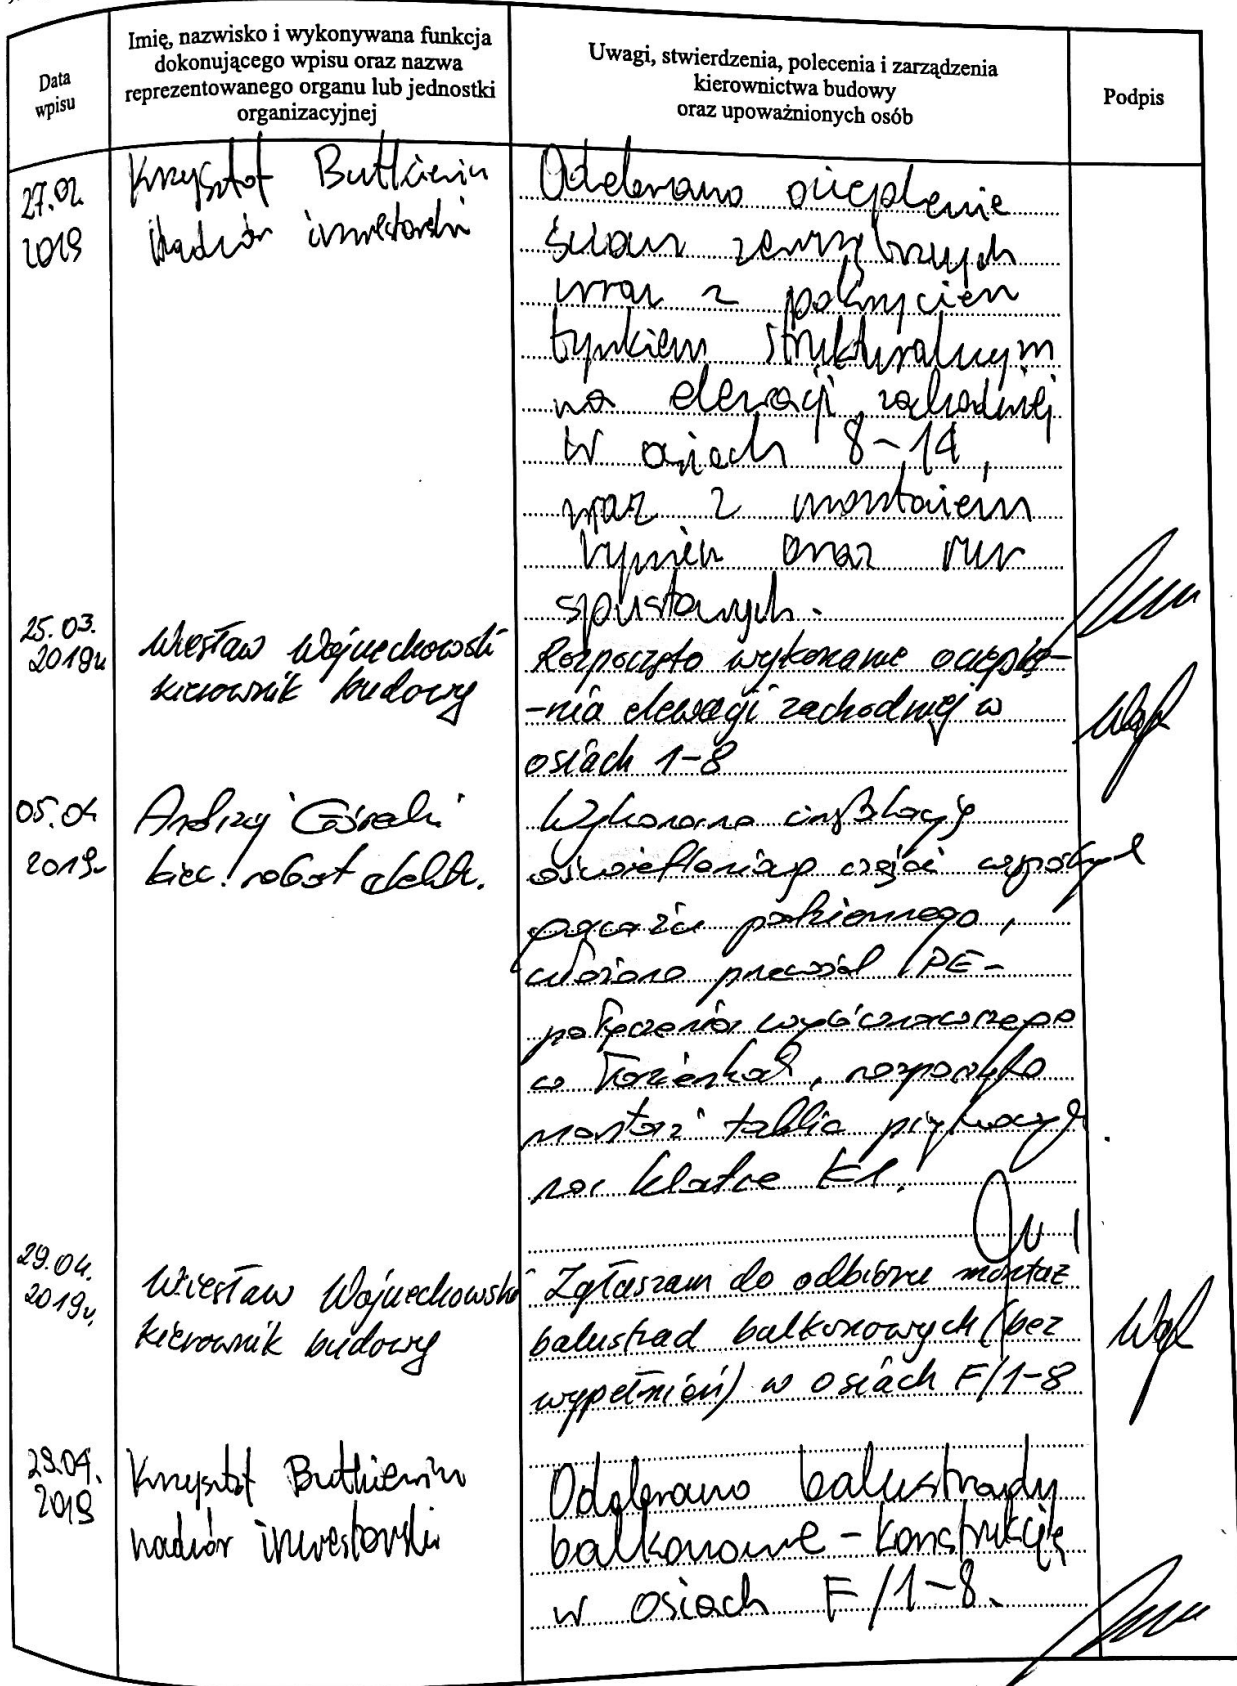 Data
wpisu
Imię, nazwisko i wykonywana funkcja
dokonującego wpisu oraz nazwa
reprezentowanego organu lub jednostki
organizacyjnej
Uwagi, stwierdzenia, polecenia i zarządzenia
kierownictwa budowy
oraz upoważnionych osób
Podpis
27.02
2019
Krzysztof Butkiewicz
Nadzór inwestorski
Odebrano ocieplenie
ścian zewnętrznych
wraz z pokryciem
tynkiem strukturalnym
na elewacji zachodniej
w osiach 8-14,
wraz z montażem
rynien oraz rur
spustowych.
25.03.
2019r
Wiesław Wojciechowski
kierownik budowy
Rozpoczęto wykonanie ocieple-
-nia elewacji zachodniej w
osiach 1-8
05.04
2019r
Andrzej Góralski
kier. robót elektr.
Wykonano instalację
oświetlenia części wspólnych
garażu podziemnego,
ułożono przewód LPE -
połączenia wyrównawczego
w łazienkach, rozpoczęto
montaż tablic piętrowych
na klatce K1.
29.04.
2019r.
Wiesław Wojciechowski
kierownik budowy
Zgłaszam do odbioru montaż
balustrad balkonowych (bez
wypełnień) w osiach F/1-8
29.04.
2019
Krzysztof Butkiewicz
nadzór inwestorski
Odebrano balustrady
balkonowe - konstrukcję
w osiach F/1-8.